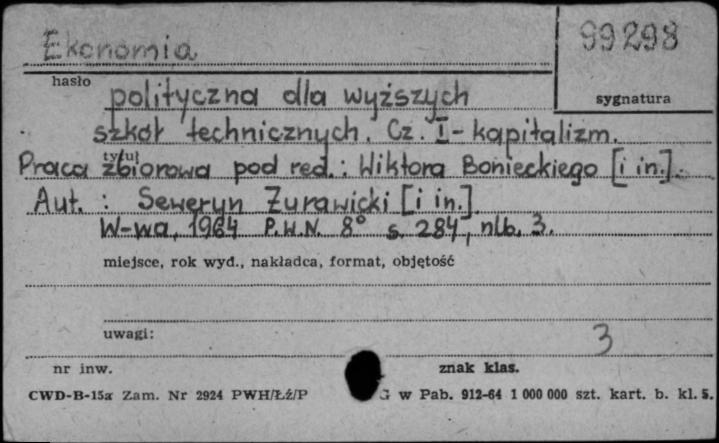 Ekonomia
99298
hasło
sygnatura
polityczna dla wyższych
szkół technicznych. Cz. I - kapitalizm.
tytuł
Praca zbiorowa pod red.: Wiktora Bonieckiego [i in.].
Aut. : Seweryn Żurawicki [i in.]
W-wa, 1964 P.W.N. 8° s. 284, nlb. 3.
miejsce, rok wyd., nakładca, format, objętość
uwagi:
3
nr inw.
znak klas.
CWD-B-15a Zam. Nr 2924 PWH/Łź/P
G w Pab. 912-64 1 000 000 szt. kart. b. kl. 5.